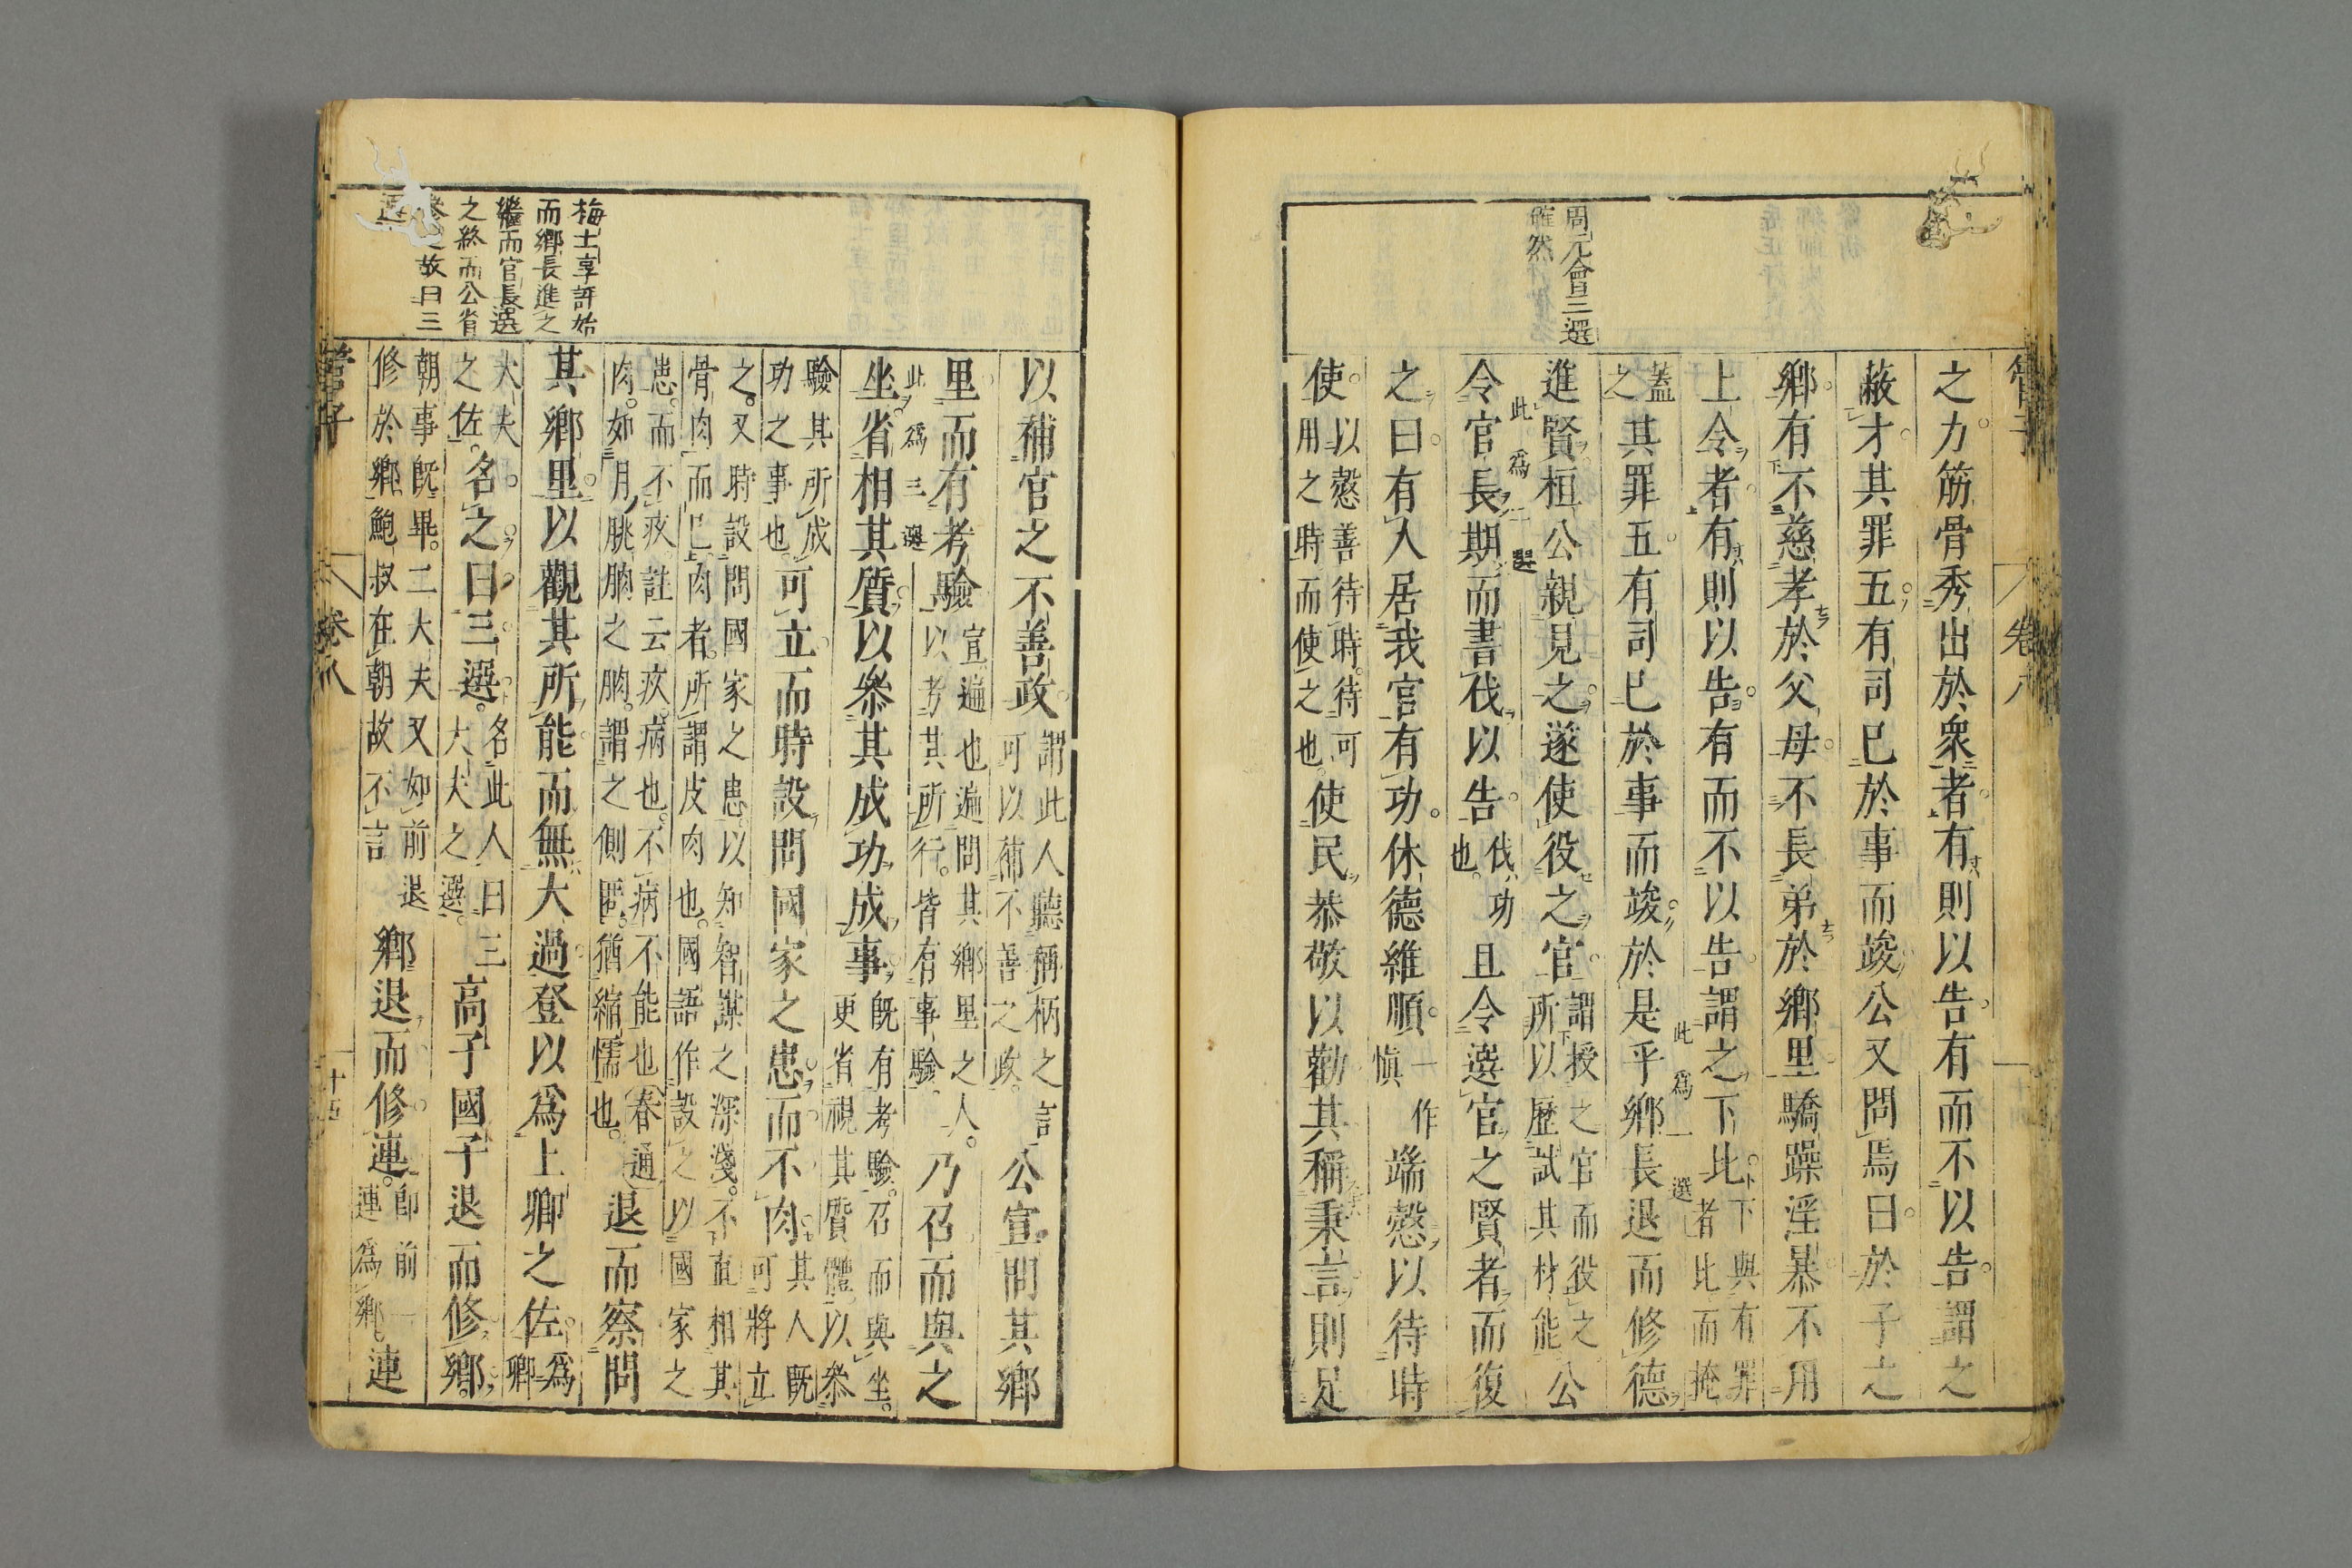 管子
卷八
周元會三選
確然
之力筋骨秀出於衆者有則以告有而不以告謂之
蔽才其罪五有司已於事而竣公又問焉曰於子之
鄉有不慈孝於父母不長弟於鄉里驕躁淫暴不用
上令者有則以告有而不以告謂之下比下與有罪者比而掩
蓋之其罪五有司已於事而竣於是乎鄉長退而修德
此爲一選
進賢桓公親見之遂使役之官謂授之官而役之所以歷試其材能公
此爲二選
令官長期而書伐以告伐功也且令選官之賢者而復
之曰有人居我官有功休德維順一作愼端愨以待時
使以愨善待時待可用之時而使之也使民恭敬以勸其稱秉言則足
以補官之不善政謂此人聽稱柄之言可以補不善之政公宣問其鄉
里而有考驗宣遍也遍問其鄉里之人以考其所行皆有事驗乃召而與之
此爲三選
坐省相其質以參其成功成事既有考驗召而與坐更省視其質體以參
驗其所成功之事也可立而時設問國家之患而不肉其人既可將立
之又時設問國家之患以知智謀之深淺不直相其骨肉而已肉者所謂皮肉也國語作設之以國家之
患而不疚註云疚病也不病不能也春通肉如月朓朒之朒謂之側匿猶縮懦也退而察問
其鄉里以觀其所能而無大過登以爲上卿之佐爲卿
大夫之佐名之曰三選名此人曰三大夫之選高子國子退而修鄉
朝事既畢二大夫又如前退修於鄉鮑叔在朝故不言鄉退而修連卽前一連爲鄉連
梅士享評始
而鄉長進之
繼而官長選
之終而公省
故曰三
選
管子
卷八
十五